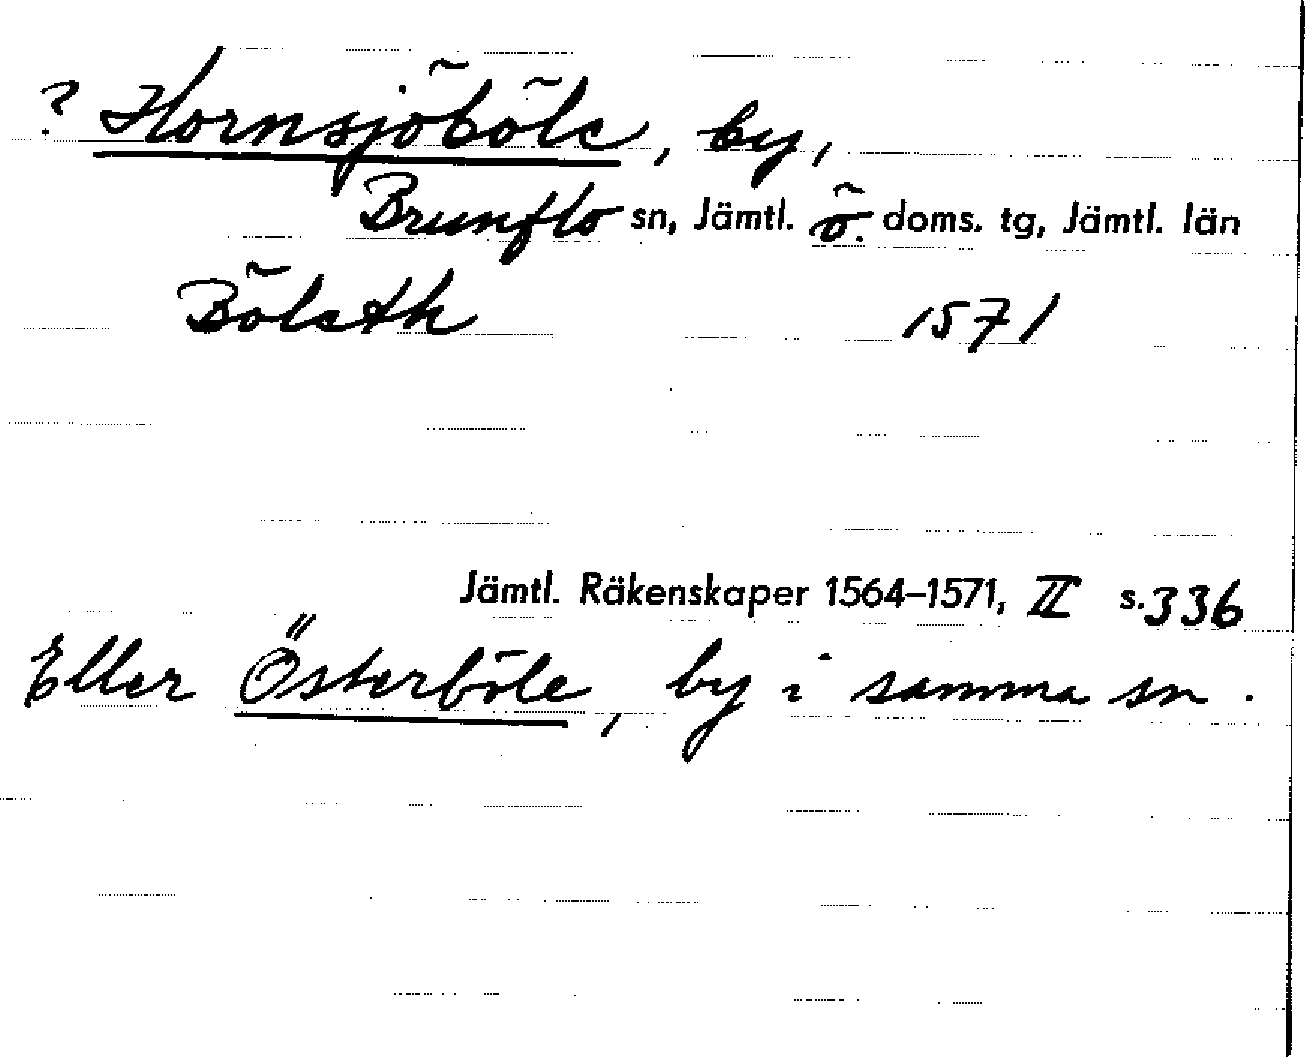 ? Hornsjöböle, by,
Brunflo sn, Jämtl. ö. doms. tg, Jämtl. län
Böleth 1571
Jämtl. Räkenskaper 1564–1571, II s. 336
Eller Österböle, by i samma sn.